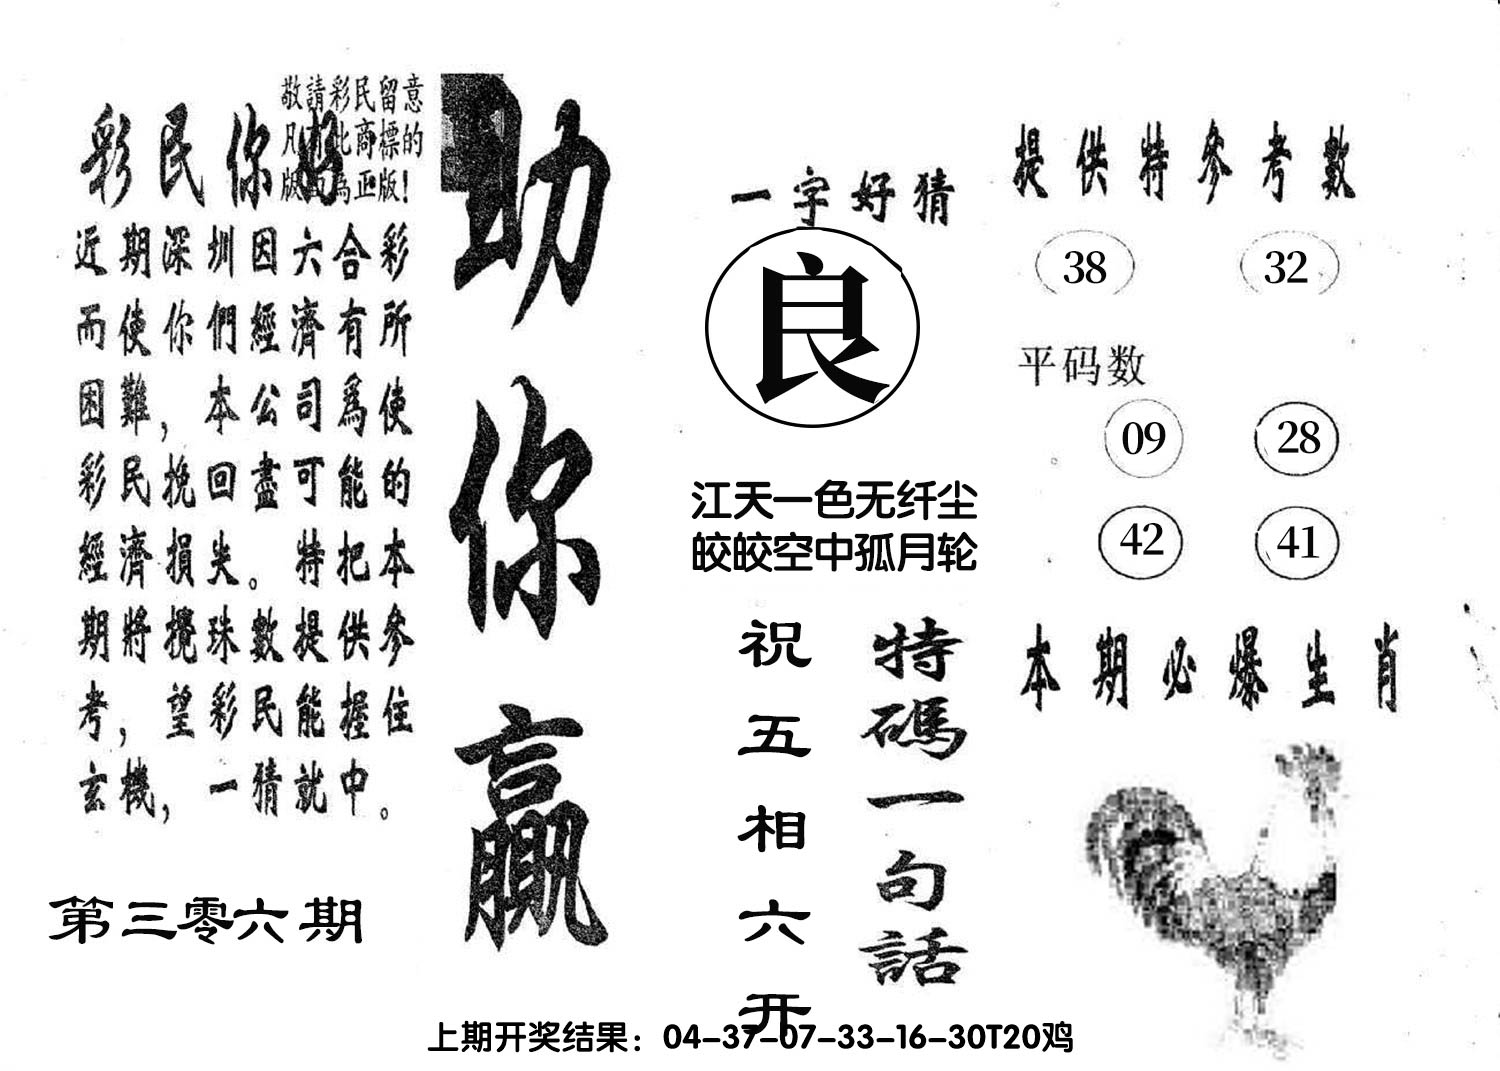 敬請彩民留意
凡有此商標的
版面為正版!
彩民你好
近期深圳因六合彩
而使你們經濟有所
困難，本公司爲使
彩民挽回盡可能的
經濟損失。特把本
期將攪珠數提供參
考，望彩民能握住
玄機，一猜就中。
第三零六期
助你贏
一字好猜
良
江天一色无纤尘
皎皎空中孤月轮
特碼一句話
祝五相六开
提供特參考數
38 32
平码数
09 28
42 41
本期必爆生肖
上期开奖结果：04-37-07-33-16-30T20鸡